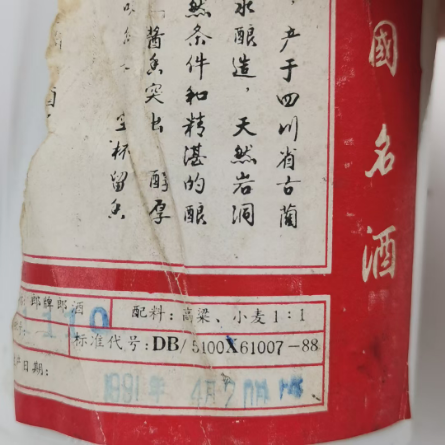 國名酒
产于四川省古蔺
水酿造，天然岩洞
然条件和精湛的酿
酱香突出 醇厚
空杯留香
郎牌郎酒 配料：高粱、小麦1：1
110
标准代号：DB/5100X61007-88
产日期：
1991年 4月